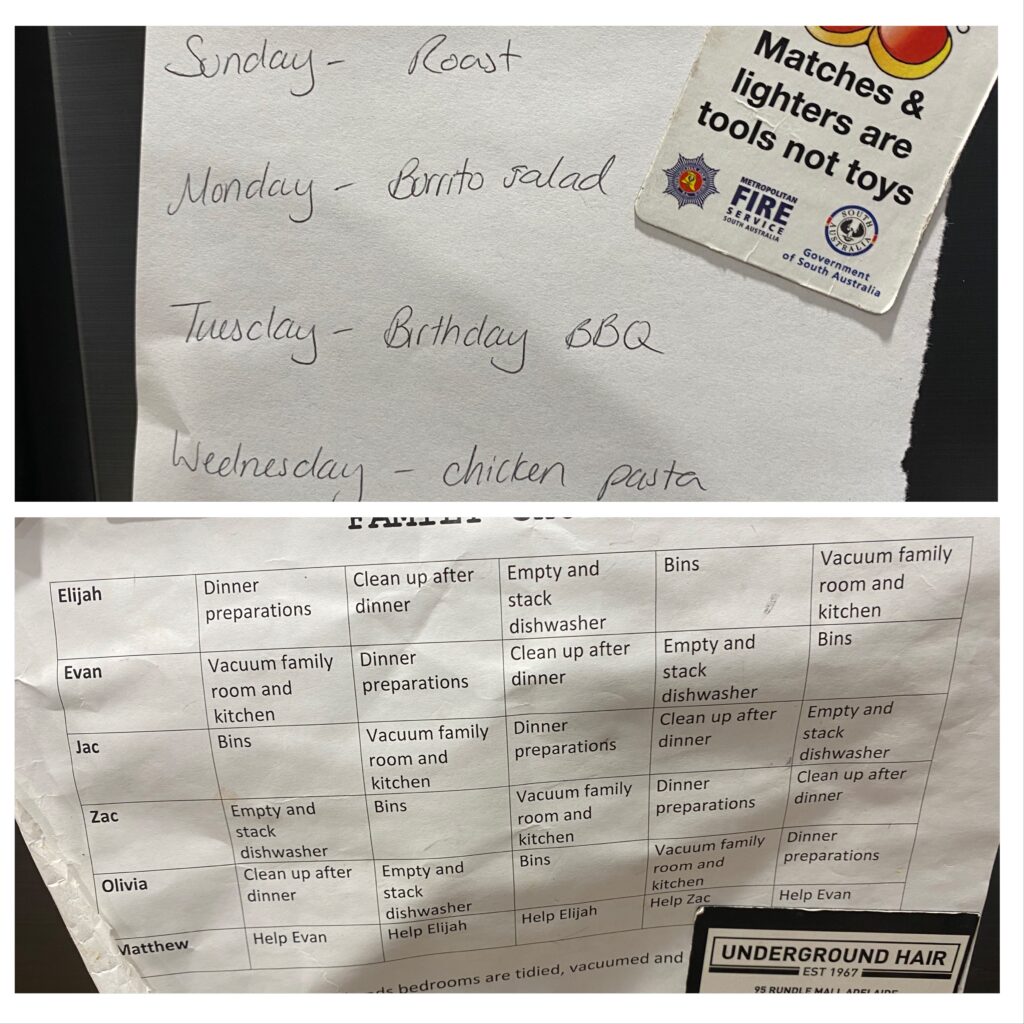 Sunday - Roast
Monday - Borrito salad
Tuesday - Birthday BBQ
Wednesday - chicken pasta
Matches &
lighters are
tools not toys
METROPOLITAN
FIRE
SERVICE
SOUTH AUSTRALIA
SOUTH
AUSTRALIA
Government
of South Australia
FAMILY
Elijah
Dinner
preparations
Clean up after
dinner
Empty and
stack
dishwasher
Bins
Vacuum family
room and
kitchen
Evan
Vacuum family
room and
kitchen
Dinner
preparations
Clean up after
dinner
Empty and
stack
dishwasher
Bins
Jac
Bins
Vacuum family
room and
kitchen
Dinner
preparations
Clean up after
dinner
Empty and
stack
dishwasher
Zac
Empty and
stack
dishwasher
Bins
Vacuum family
room and
kitchen
Dinner
preparations
Clean up after
dinner
Olivia
Clean up after
dinner
Empty and
stack
dishwasher
Bins
Vacuum family
room and
kitchen
Dinner
preparations
Matthew
Help Evan
Help Elijah
Help Elijah
Help Zac
Help Evan
bedrooms are tidied, vacuumed and
UNDERGROUND HAIR
EST 1967
95 RUNDLE MALL ADELAIDE